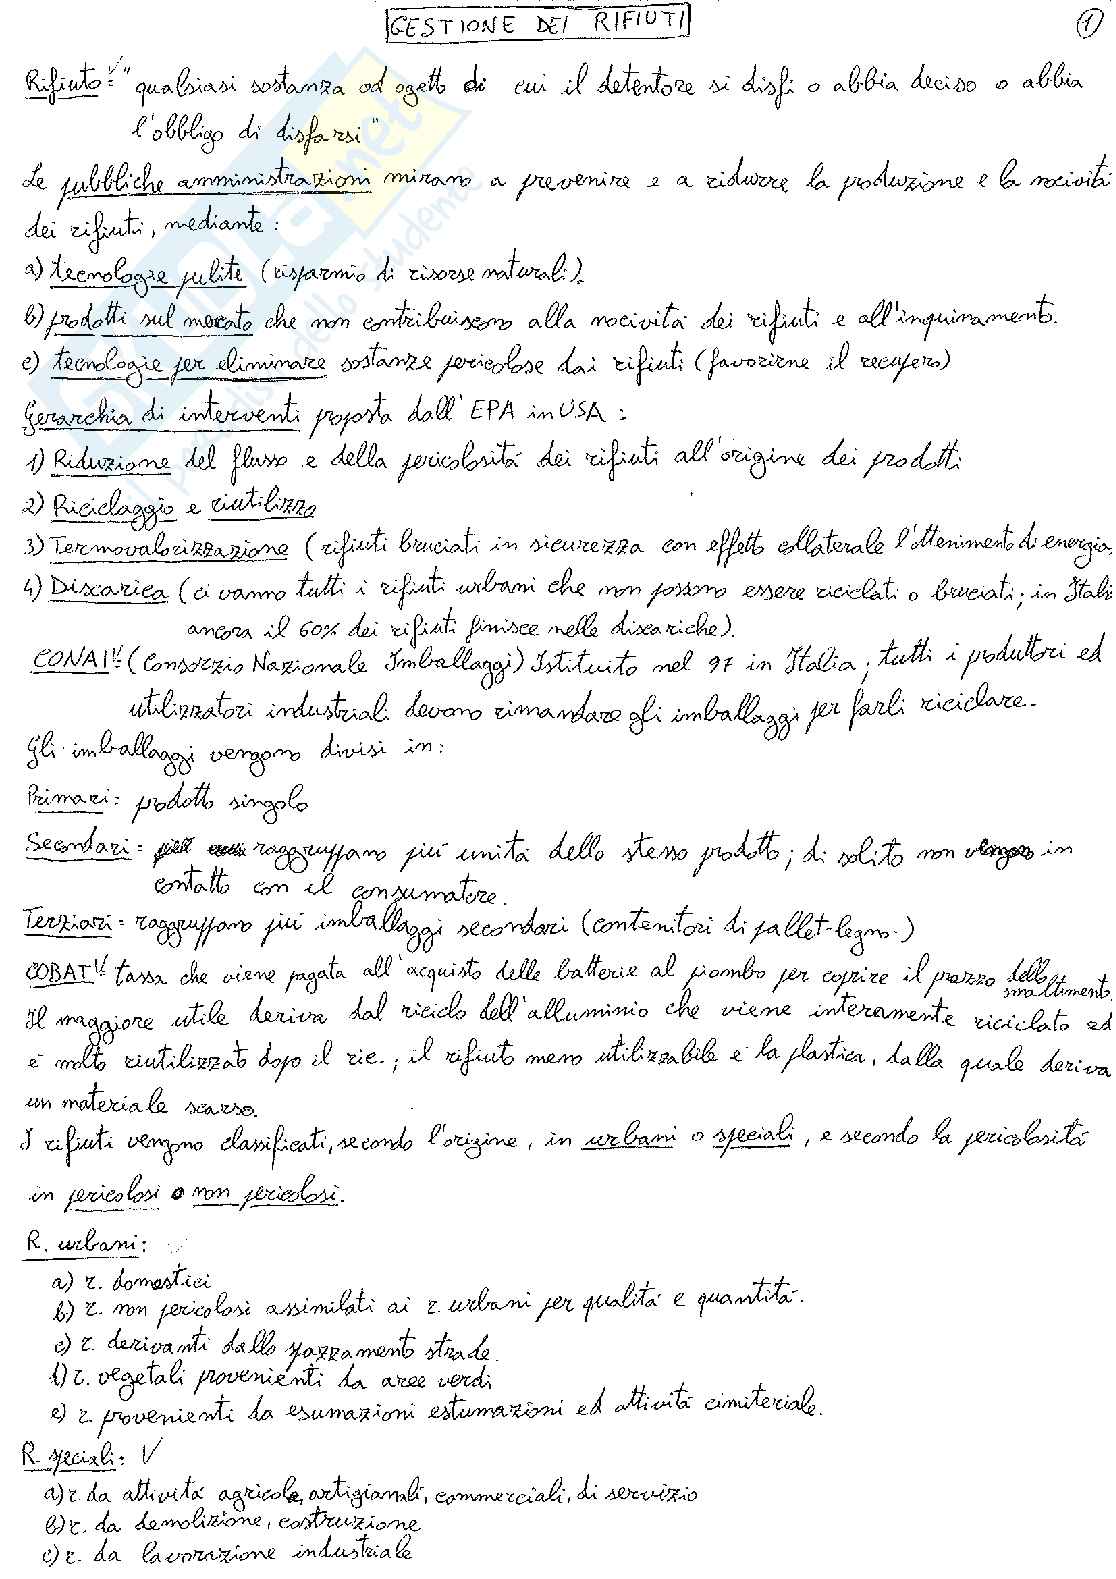 GESTIONE DEI RIFIUTI
1
Rifiuto: "qualsiasi sostanza od ogetto di cui il detentore si disfi o abbia deciso o abbia
l'obbligo di disfarsi"
Le pubbliche amministrazioni mirano a prevenire e a ridurre la produzione e la nocività
dei rifiuti, mediante:
a) tecnologie pulite (risparmio di risorse naturali).
b) prodotti sul mercato che non contribuiscono alla nocività dei rifiuti e all'inquinamento.
c) tecnologie per eliminare sostanze pericolose dai rifiuti (favorirne il recupero)
Gerarchia di interventi proposta dall'EPA in USA:
1) Riduzione del flusso e della pericolosità dei rifiuti all'origine dei prodotti
2) Riciclaggio e riutilizzo
3) Termovalorizzazione (rifiuti bruciati in sicurezza con effetto collaterale l'ottenimento di energia,
4) Discarica (ci vanno tutti i rifiuti urbani che non possono essere riciclati o bruciati; in Itali
ancora il 60% dei rifiuti finisce nelle discariche).
CONAI: (Consorzio Nazionale Imballaggi) Istituito nel 97 in Italia; tutti i produttori ed
utilizzatori industriali devono rimandare gli imballaggi per farli riciclare.
Gli imballaggi vengono divisi in:
Primari: prodotto singolo
Secondari: raggruppano più unità dello stesso prodotto; di solito non vengono in
contatto con il consumatore.
Terziari: raggruppano più imballaggi secondari (contenitori di pallet-legno-)
COBAT: tassa che viene pagata all'acquisto delle batterie al piombo per coprire il prezzo dello smaltimento.
Il maggiore utile deriva dal riciclo dell'alluminio che viene interamente riciclato ed
è molto riutilizzato dopo il ric.; il rifiuto meno utilizzabile è la plastica, dalla quale deriva
un materiale scarso.
I rifiuti vengono classificati, secondo l'origine, in urbani o speciali, e secondo la pericolosità
in pericolosi o non pericolosi.
R. urbani:
a) r. domestici
b) r. non pericolosi assimilati ai r. urbani per qualità e quantità.
c) r. derivanti dallo spazzamento strade.
d) r. vegetali provenienti da aree verdi
e) r. provenienti da esumazioni estumazioni ed attività cimiteriale.
R. speciali: V
a) r. da attività agricole, artigianali, commerciali, di servizio
b) r. da demolizione, costruzione
c) r. da lavorazione industriale